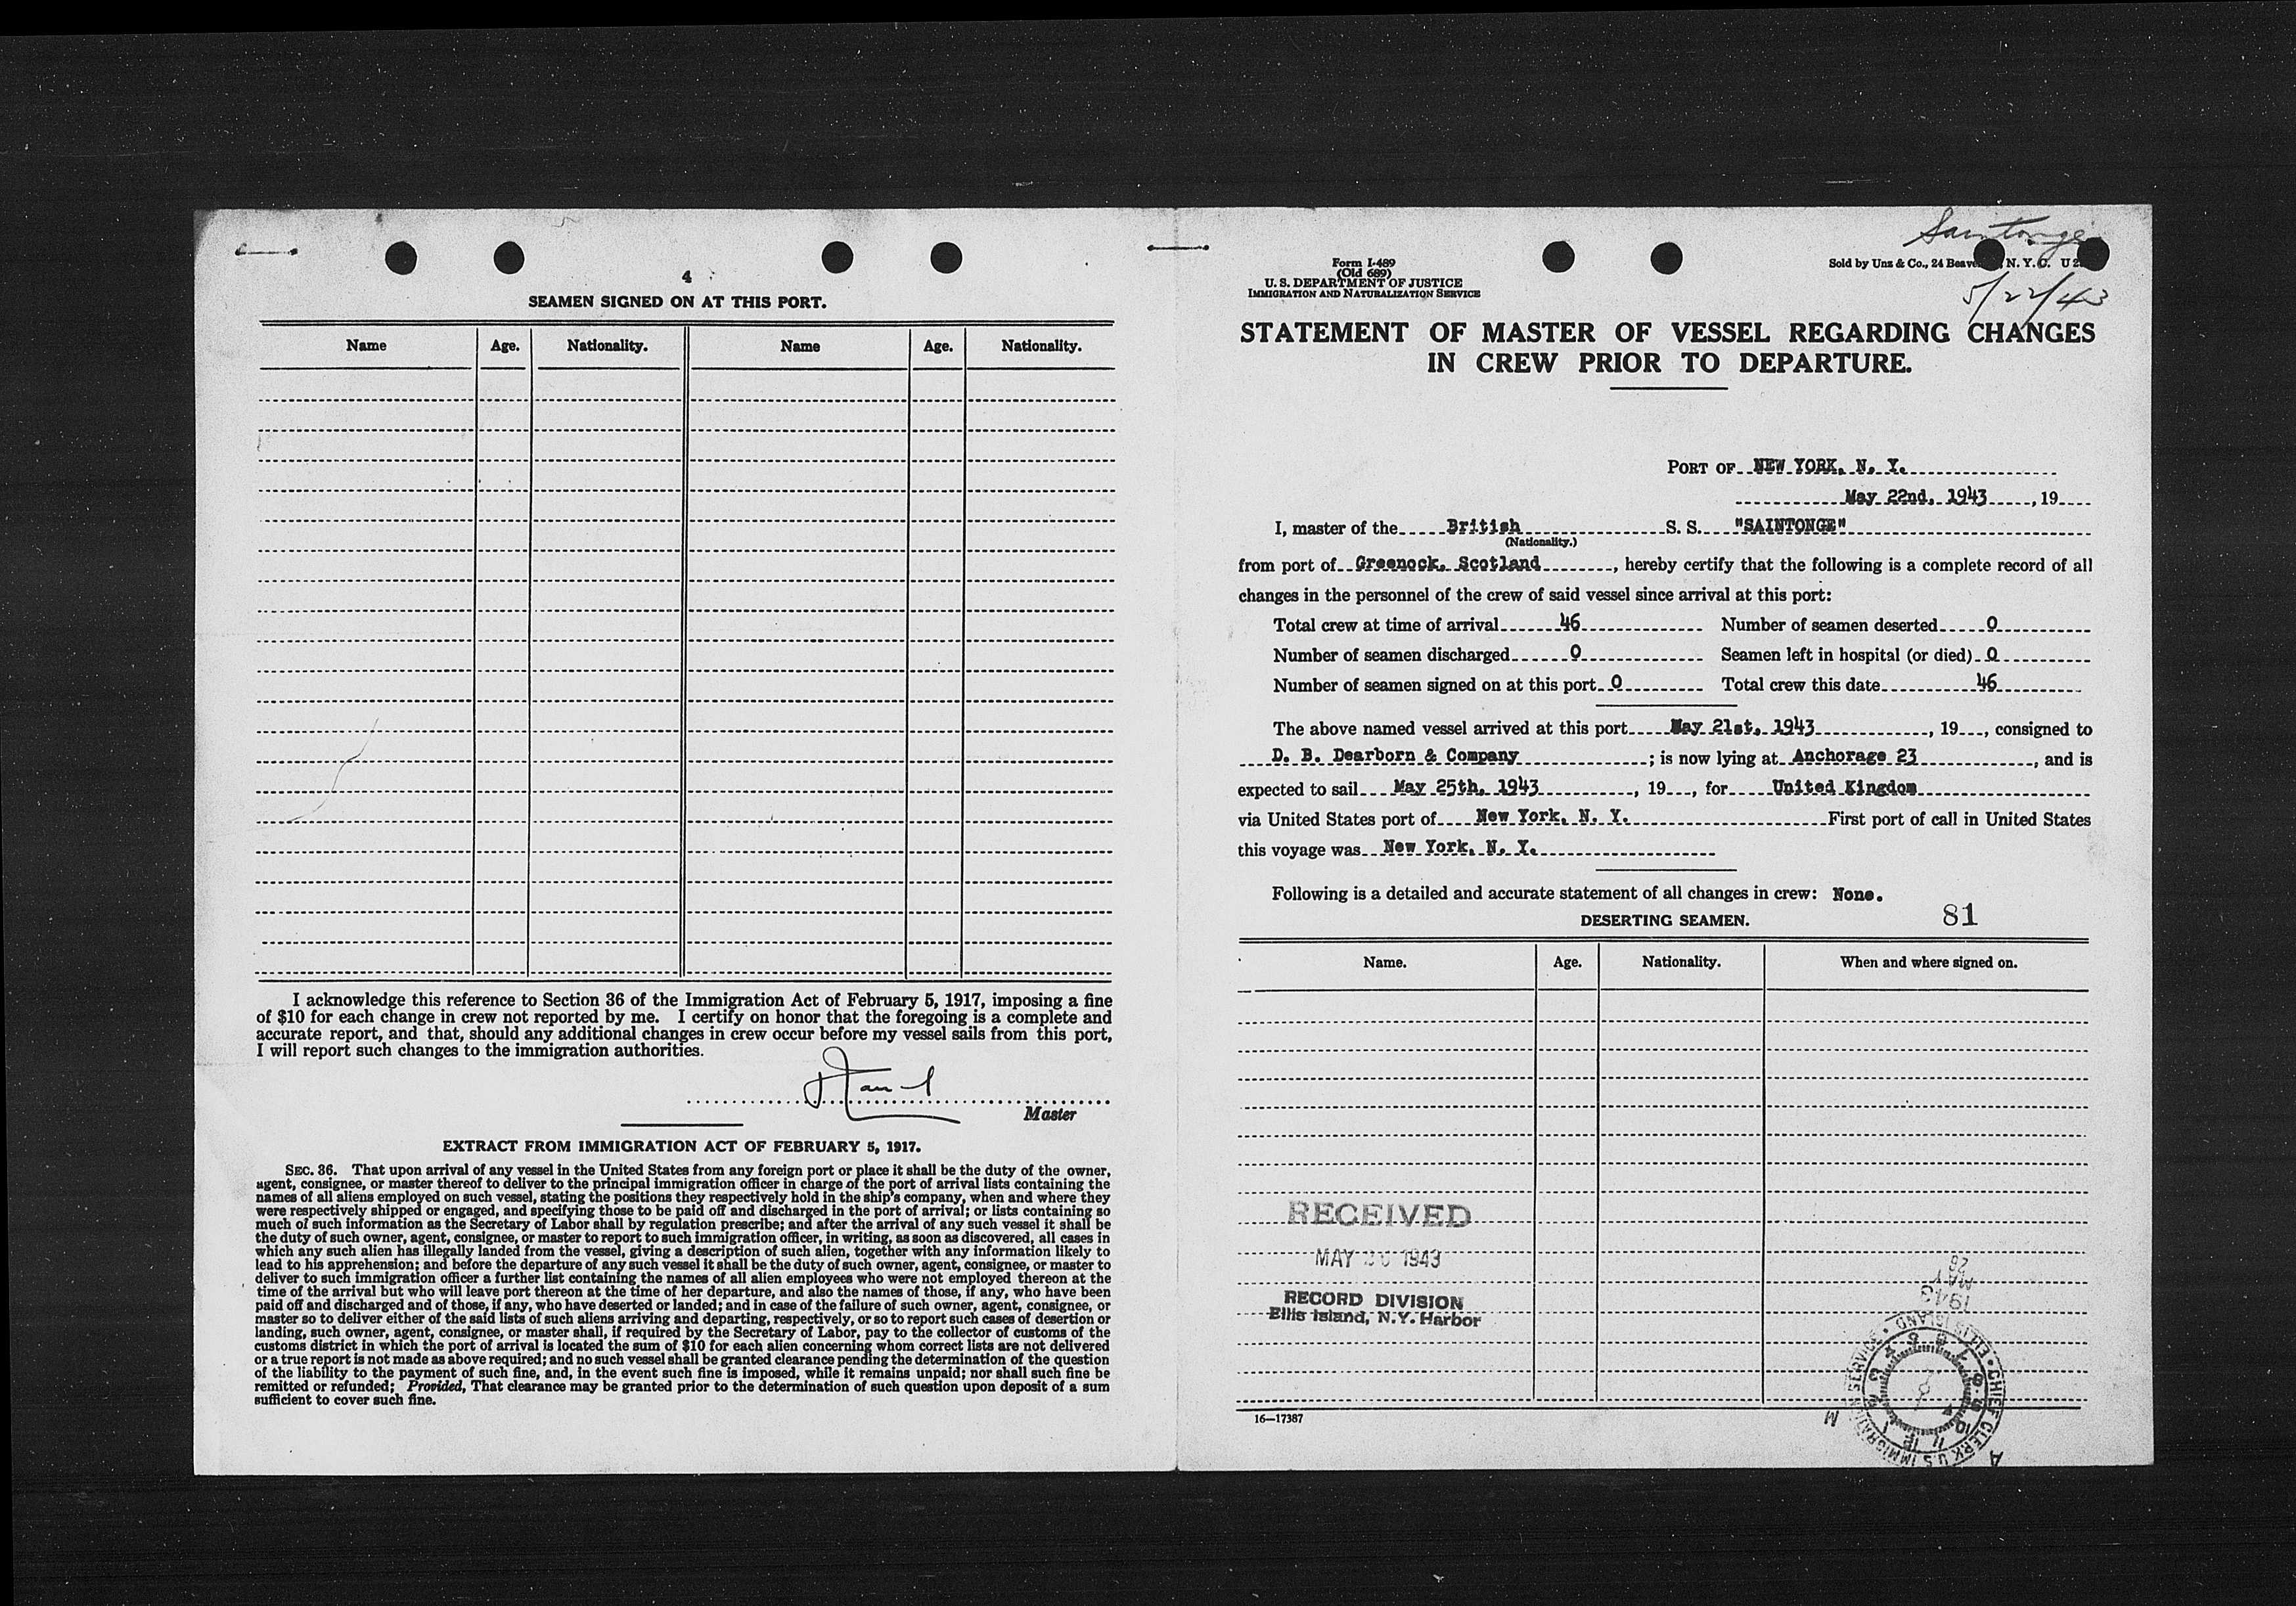 4
SEAMEN SIGNED ON AT THIS PORT.
Name Age. Nationality. Name Age. Nationality.
I acknowledge this reference to Section 36 of the Immigration Act of February 5, 1917, imposing a fine
of $10 for each change in crew not reported by me. I certify on honor that the foregoing is a complete and
accurate report, and that, should any additional changes in crew occur before my vessel sails from this port,
I will report such changes to the immigration authorities.
Master
EXTRACT FROM IMMIGRATION ACT OF FEBRUARY 5, 1917.
SEC. 36. That upon arrival of any vessel in the United States from any foreign port or place it shall be the duty of the owner,
agent, consignee, or master thereof to deliver to the principal immigration officer in charge of the port of arrival lists containing the
names of all aliens employed on such vessel, stating the positions they respectively hold in the ship's company, when and where they
were respectively shipped or engaged, and specifying those to be paid off and discharged in the port of arrival; or lists containing so
much of such information as the Secretary of Labor shall by regulation prescribe; and after the arrival of any such vessel it shall be
the duty of such owner, agent, consignee, or master to report to such immigration officer, in writing, as soon as discovered, all cases in
which any such alien has illegally landed from the vessel, giving a description of such alien, together with any information likely to
lead to his apprehension; and before the departure of any such vessel it shall be the duty of such owner, agent, consignee, or master to
deliver to such immigration officer a further list containing the names of all alien employees who were not employed thereon at the
time of the arrival but who will leave port thereon at the time of her departure, and also the names of those, if any, who have been
paid off and discharged and of those, if any, who have deserted or landed; and in case of the failure of such owner, agent, consignee, or
master so to deliver either of the said lists of such aliens arriving and departing, respectively, or so to report such cases of desertion or
landing, such owner, agent, consignee, or master shall, if required by the Secretary of Labor, pay to the collector of customs of the
customs district in which the port of arrival is located the sum of $10 for each alien concerning whom correct lists are not delivered
or a true report is not made as above required; and no such vessel shall be granted clearance pending the determination of the question
of the liability to the payment of such fine, and, in the event such fine is imposed, while it remains unpaid; nor shall such fine be
remitted or refunded; Provided, That clearance may be granted prior to the determination of such question upon deposit of a sum
sufficient to cover such fine.
Saintonge
Form I-489
(Old 689)
U. S. DEPARTMENT OF JUSTICE
IMMIGRATION AND NATURALIZATION SERVICE
Sold by Unz & Co., 24 Beaver N. Y. C.
5/22/43
STATEMENT OF MASTER OF VESSEL REGARDING CHANGES
IN CREW PRIOR TO DEPARTURE.
PORT OF NEW YORK, N. Y.
May 22nd, 1943, 19
I, master of the British S. S. "SAINTONGE"
(Nationality.)
from port of Greenock, Scotland, hereby certify that the following is a complete record of all
changes in the personnel of the crew of said vessel since arrival at this port:
Total crew at time of arrival 46 Number of seamen deserted 0
Number of seamen discharged 0 Seamen left in hospital (or died) 0
Number of seamen signed on at this port 0 Total crew this date 46
The above named vessel arrived at this port May 21st, 1943, 19, consigned to
D. B. Dearborn & Company; is now lying at Anchorage 23, and is
expected to sail May 25th, 1943, 19, for United Kingdom
via United States port of New York, N. Y. First port of call in United States
this voyage was New York, N. Y.
Following is a detailed and accurate statement of all changes in crew: None.
DESERTING SEAMEN. 81
Name. Age. Nationality. When and where signed on.
RECEIVED
MAY 1943
RECORD DIVISION
Ellis Island, N.Y. Harbor
MAY 26
1943
CHIEF CLERK U.S. IMMIGRATION SERVICE • ELLIS ISLAND
1 2 3 4 5 6 7 8 9 10 11 12
A M
16—17387